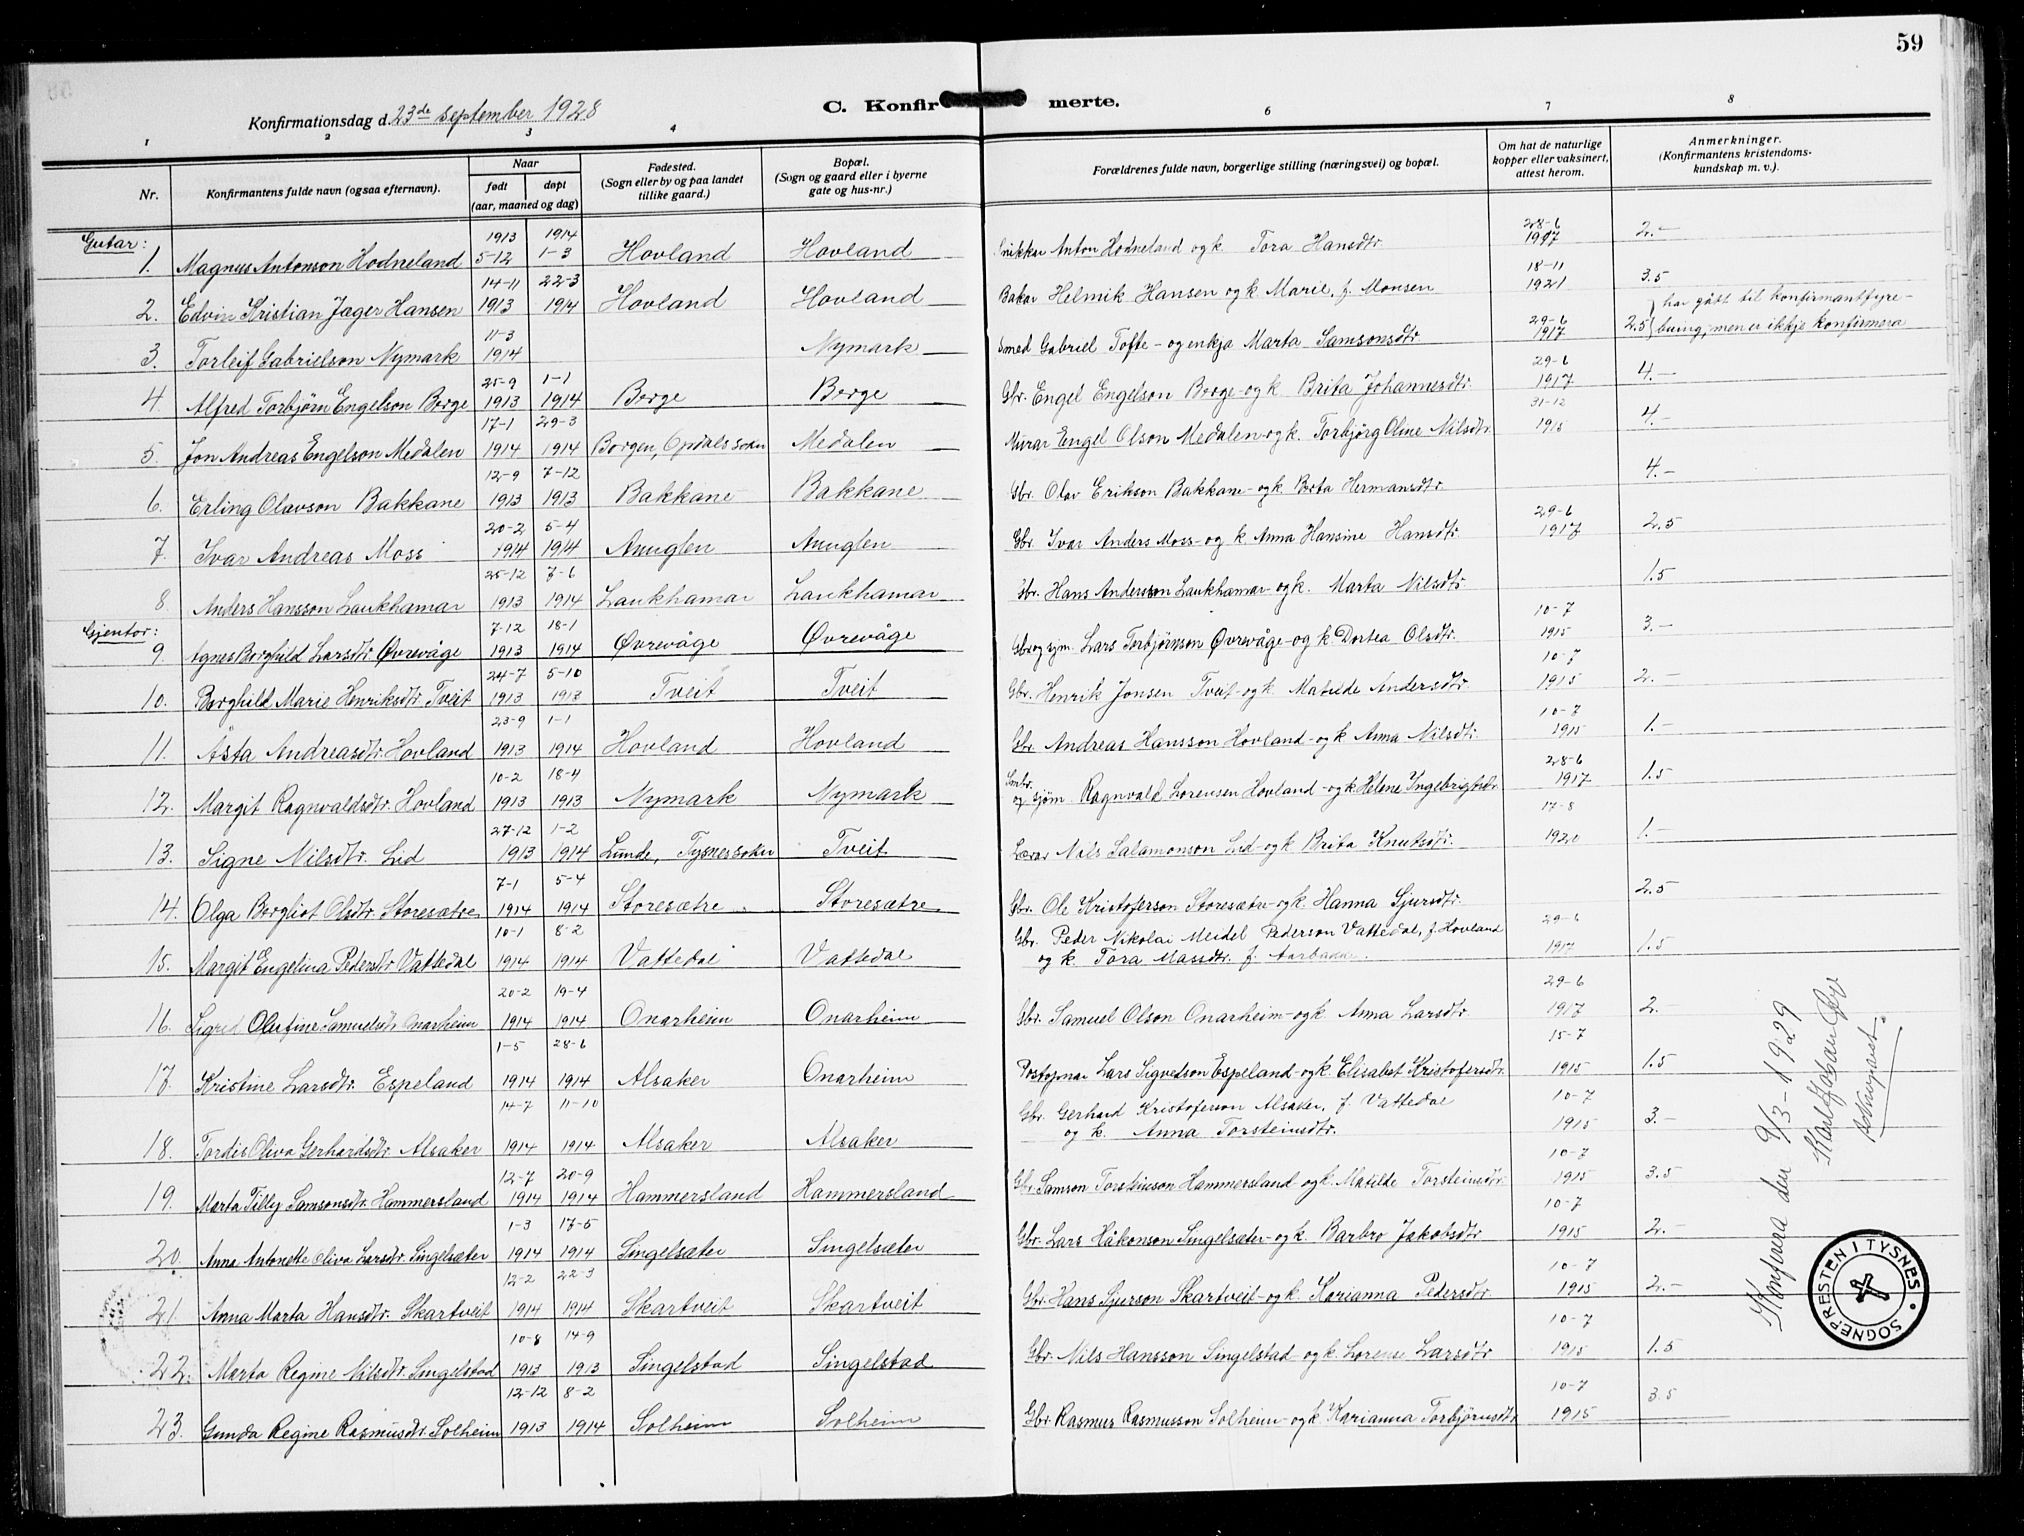 59
Konfirmationsdag d. 23de september 1928
C. Konfirmerte.
1 2 3 4 6 7 8
Nr.
Konfirmantens fulde navn (ogsaa efternavn).
Naar
født døpt
(aar, maaned og dag)
Fødested.
(Sogn eller by og paa landet
tillike gaard.)
Bopæl.
(Sogn og gaard eller i byerne
gate og hus-nr.)
Forældrenes fulde navn, borgerlige stilling (næringsvei) og bopæl.
Om hat de naturlige
kopper eller vaksinert,
attest herom.
Anmerkninger.
(Konfirmantens kristendoms-
kundskap m. v.).
Gutar:
1913 1914 28-6
1. Magnus Antonson Hodneland 5-12 1-3 Hovland Hovland Snikkar Anton Hodneland og k. Tora Hansdtr 1917 2.-
14-11 22-3 18-11
2. Edvin Kristian Jager Hansen 1913 1914 Hovland Hovland Bakar Helmik Hansen og k. Marie, f. Monsen 1921 3.5
11-3 29-6 har gått til konfirmantfyre-
3. Torleif Gabrielson Nymark 1914 Nymark Smed Gabriel Tofte - og enkja Marta Samsonsdtr 1917 2.5 buing, men er ikkje konfirmera
25-9 1-1 29-6
4. Alfred Torbjørn Engelson Borge 1913 1914 Borge Borge Gbr. Engel Engelson Borge - og k. Brita Johannesdtr. 1917 4.-
17-1 29-3 31-12
5. Jon Andreas Engelson Medalen 1914 1914 Borgen, Opdals sokn Medalen Murar Engel Olson Medalen og k. Torbjørg Oline Nilsdtr. 1915 4.-
12-9 7-12
6. Erling Olavson Bakkane 1913 1913 Bakkane Bakkane Gbr. Olav Erikson Bakkane - og k. Berta Hermansdtr 4.-
20-2 5-4 29-6
7. Ivar Andreas Moss 1914 1914 Anuglen Anuglen Gbr. Ivar Anders Moss - og k. Anna Hansine Hansdtr. 1917 2.5
25-12 7-6
8. Anders Hansson Laukhamar 1913 1914 Laukhamar Laukhamar Gbr. Hans Andersson Laukhamar - og k. Marta Nilsdtr. 1.5
Gjentor:
7-12 18-1 10-7
9. Agnes Borghild Larsdtr. Øvrevåge 1913 1914 Øvrevåge Øvrevåge Gbr og sjm. Lars Torbjørnson Øvrevåge - og k. Dortea Olsdtr. 1915 3.-
24-7 5-10 10-7
10. Borghild Marie Henriksdtr. Tveit 1913 1913 Tveit Tveit Gbr. Henrik Jonsen Tveit - og k. Matilde Andersdtr. 1915 2.-
23-9 1-1 10-7
11. Åsta Andreasdtr. Hovland 1913 1914 Hovland Hovland Gbr. Andreas Hansson Hovland - og k. Anna Nilsdtr. 1915 1.-
10-2 18-4 28-6
12. Margit Ragnvaldsdtr. Hovland 1913 1913 Nymark Nymark og sjøm. Ragnvald Lorensen Hovland - og k. Helene Ingebrigtsdtr. 1917 1.5
27-12 1-2 17-8
13. Signe Nilsdtr. Lid 1913 1914 Lunde, Tysnes sokn Tveit Lærar Nils Salamonson Lid - og k. Brita Knutsdtr. 1920 1.-
7-1 5-4
14. Olga Bergliot Olsdtr. Storesætre 1914 1914 Storesætre Storesætre Gbr. Ole Kristoferson Storesætre - og k. Hanna Sjursdtr. 2.5
10-1 8-2 Gbr. Peder Nikolai Meidel Pederson Vattedal, f. Hovland 29-6
15. Margit Engelina Pedersdtr Vattedal 1914 1914 Vattedal Vattedal og k. Tora Massdtr. f. Aarbakke. 1917 1.5
20-2 19-4 29-6
16. Sigrid Olufine Samuelsdtr Onarheim 1914 1914 Onarheim Onarheim Gbr. Samuel Olson Onarheim - og k. Anna Larsdtr. 1917 2.-
1-5 28-6 15-7
17. Kristine Larsdtr. Espeland 1914 1914 Alsaker Onarheim Postopnar Lars Sigvedson Espeland - og k. Elisabet Kristofersdtr. 1915 1.5
14-7 11-10 Gbr. Gerhard Kristoferson Alsaker, f. Vattedal 10-7
18. Tordis Oliva Gerhardsdtr. Alsaker 1914 1914 Alsaker Alsaker og k. Anna Torsteinsdtr. 1915 3.-
12-7 20-9 10-7
19. Marta Tilley Samsonsdtr. Hammersland 1914 1914 Hammersland Hammersland Gbr. Samson Torsteinson Hammersland og k. Matilde Torsteinsdtr. 1915 3.5
1-3 17-5 10-7
20. Anna Antonette Oliva Larsdtr. Singelsæter 1914 1914 Singelsæter Singelsæter Gbr. Lars Håkonson Singelsæter - og k. Barbro Jakobsdtr 1915 2.-
12-2 22-3 10-7
21. Anna Marta Hansdtr. Skartveit 1914 1914 Skartveit Skartveit Gbr. Hans Sjurson Skartveit - og k. Karianna Pedersdtr 1915 2.-
10-8 14-9 10-7
22. Marta Regine Nilsdtr. Singelstad 1913 1913 Singelstad Singelstad Gbr. Nils Hansson Singelstad - og k. Lorense Larsdtr 1915 1.5
12-12 8-2 10-7
23. Gunda Regine Rasmusdtr. Solheim 1913 1914 Solheim Solheim Gbr. Rasmus Rasmusson Solheim - og k. Karianna Torbjørnsdtr 1915 3.5
den 9/3-1929
SOGNEPRESTEN I TYSNES